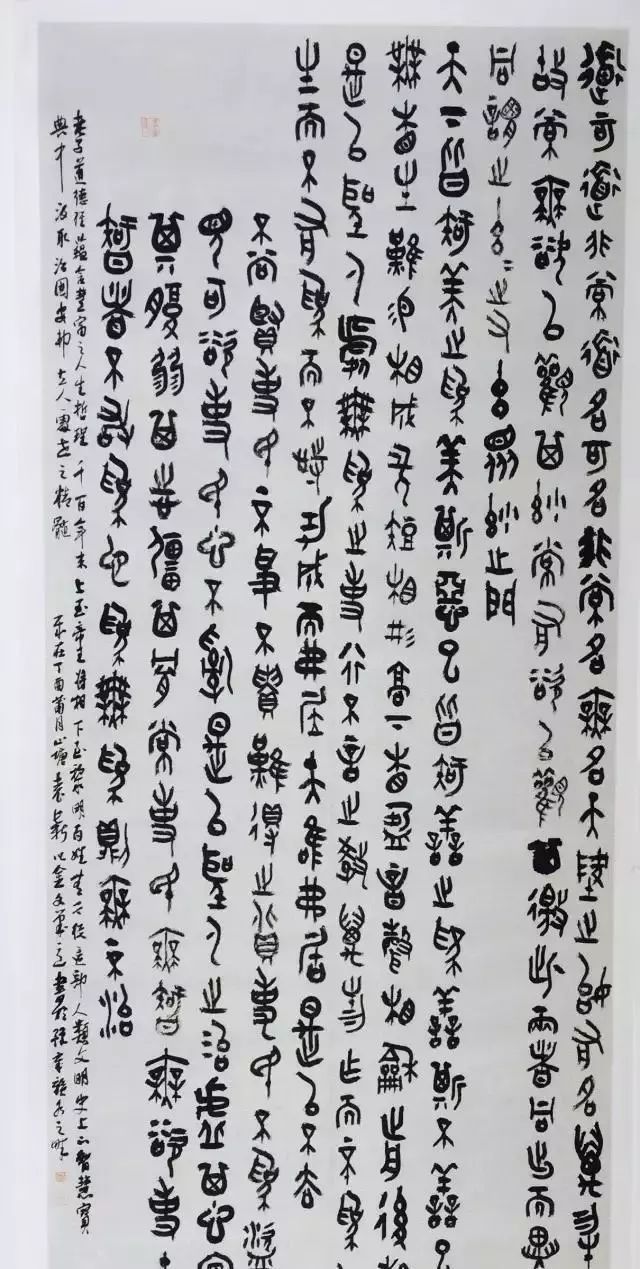 道可道非常道名可名非常名無名天地之始有名萬物
故常無欲以觀其妙常有欲以觀其徼此兩者同出而異
同謂之玄玄之又玄眾妙之門
天下皆知美之為美斯惡已皆知善之為善斯不善已
無相生難易相成長短相形高下相盈音聲相和前後相
是以聖人處無為之事行不言之教萬物作而不為
生而不有為而不恃功成而弗居夫唯弗居是以不去
不尚賢使民不爭不貴難得之貨使民不為盜
見可欲使民心不亂是以聖人之治虛其心實
其腹弱其志強其骨常使民無知無欲使
智者不敢為也為無為則無不治
老子道德經蘊含豐富之人生哲理千百年來上至帝王將相下至黎明百姓 這部人類文明史上的智慧寶
典中汲取治國安邦立人處世之精髓 歲在丁酉蒲月 以金文筆意書於 之畔